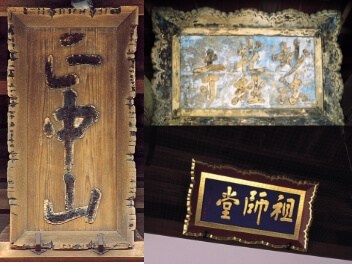 正中山
妙法
花経
寺
祖師堂